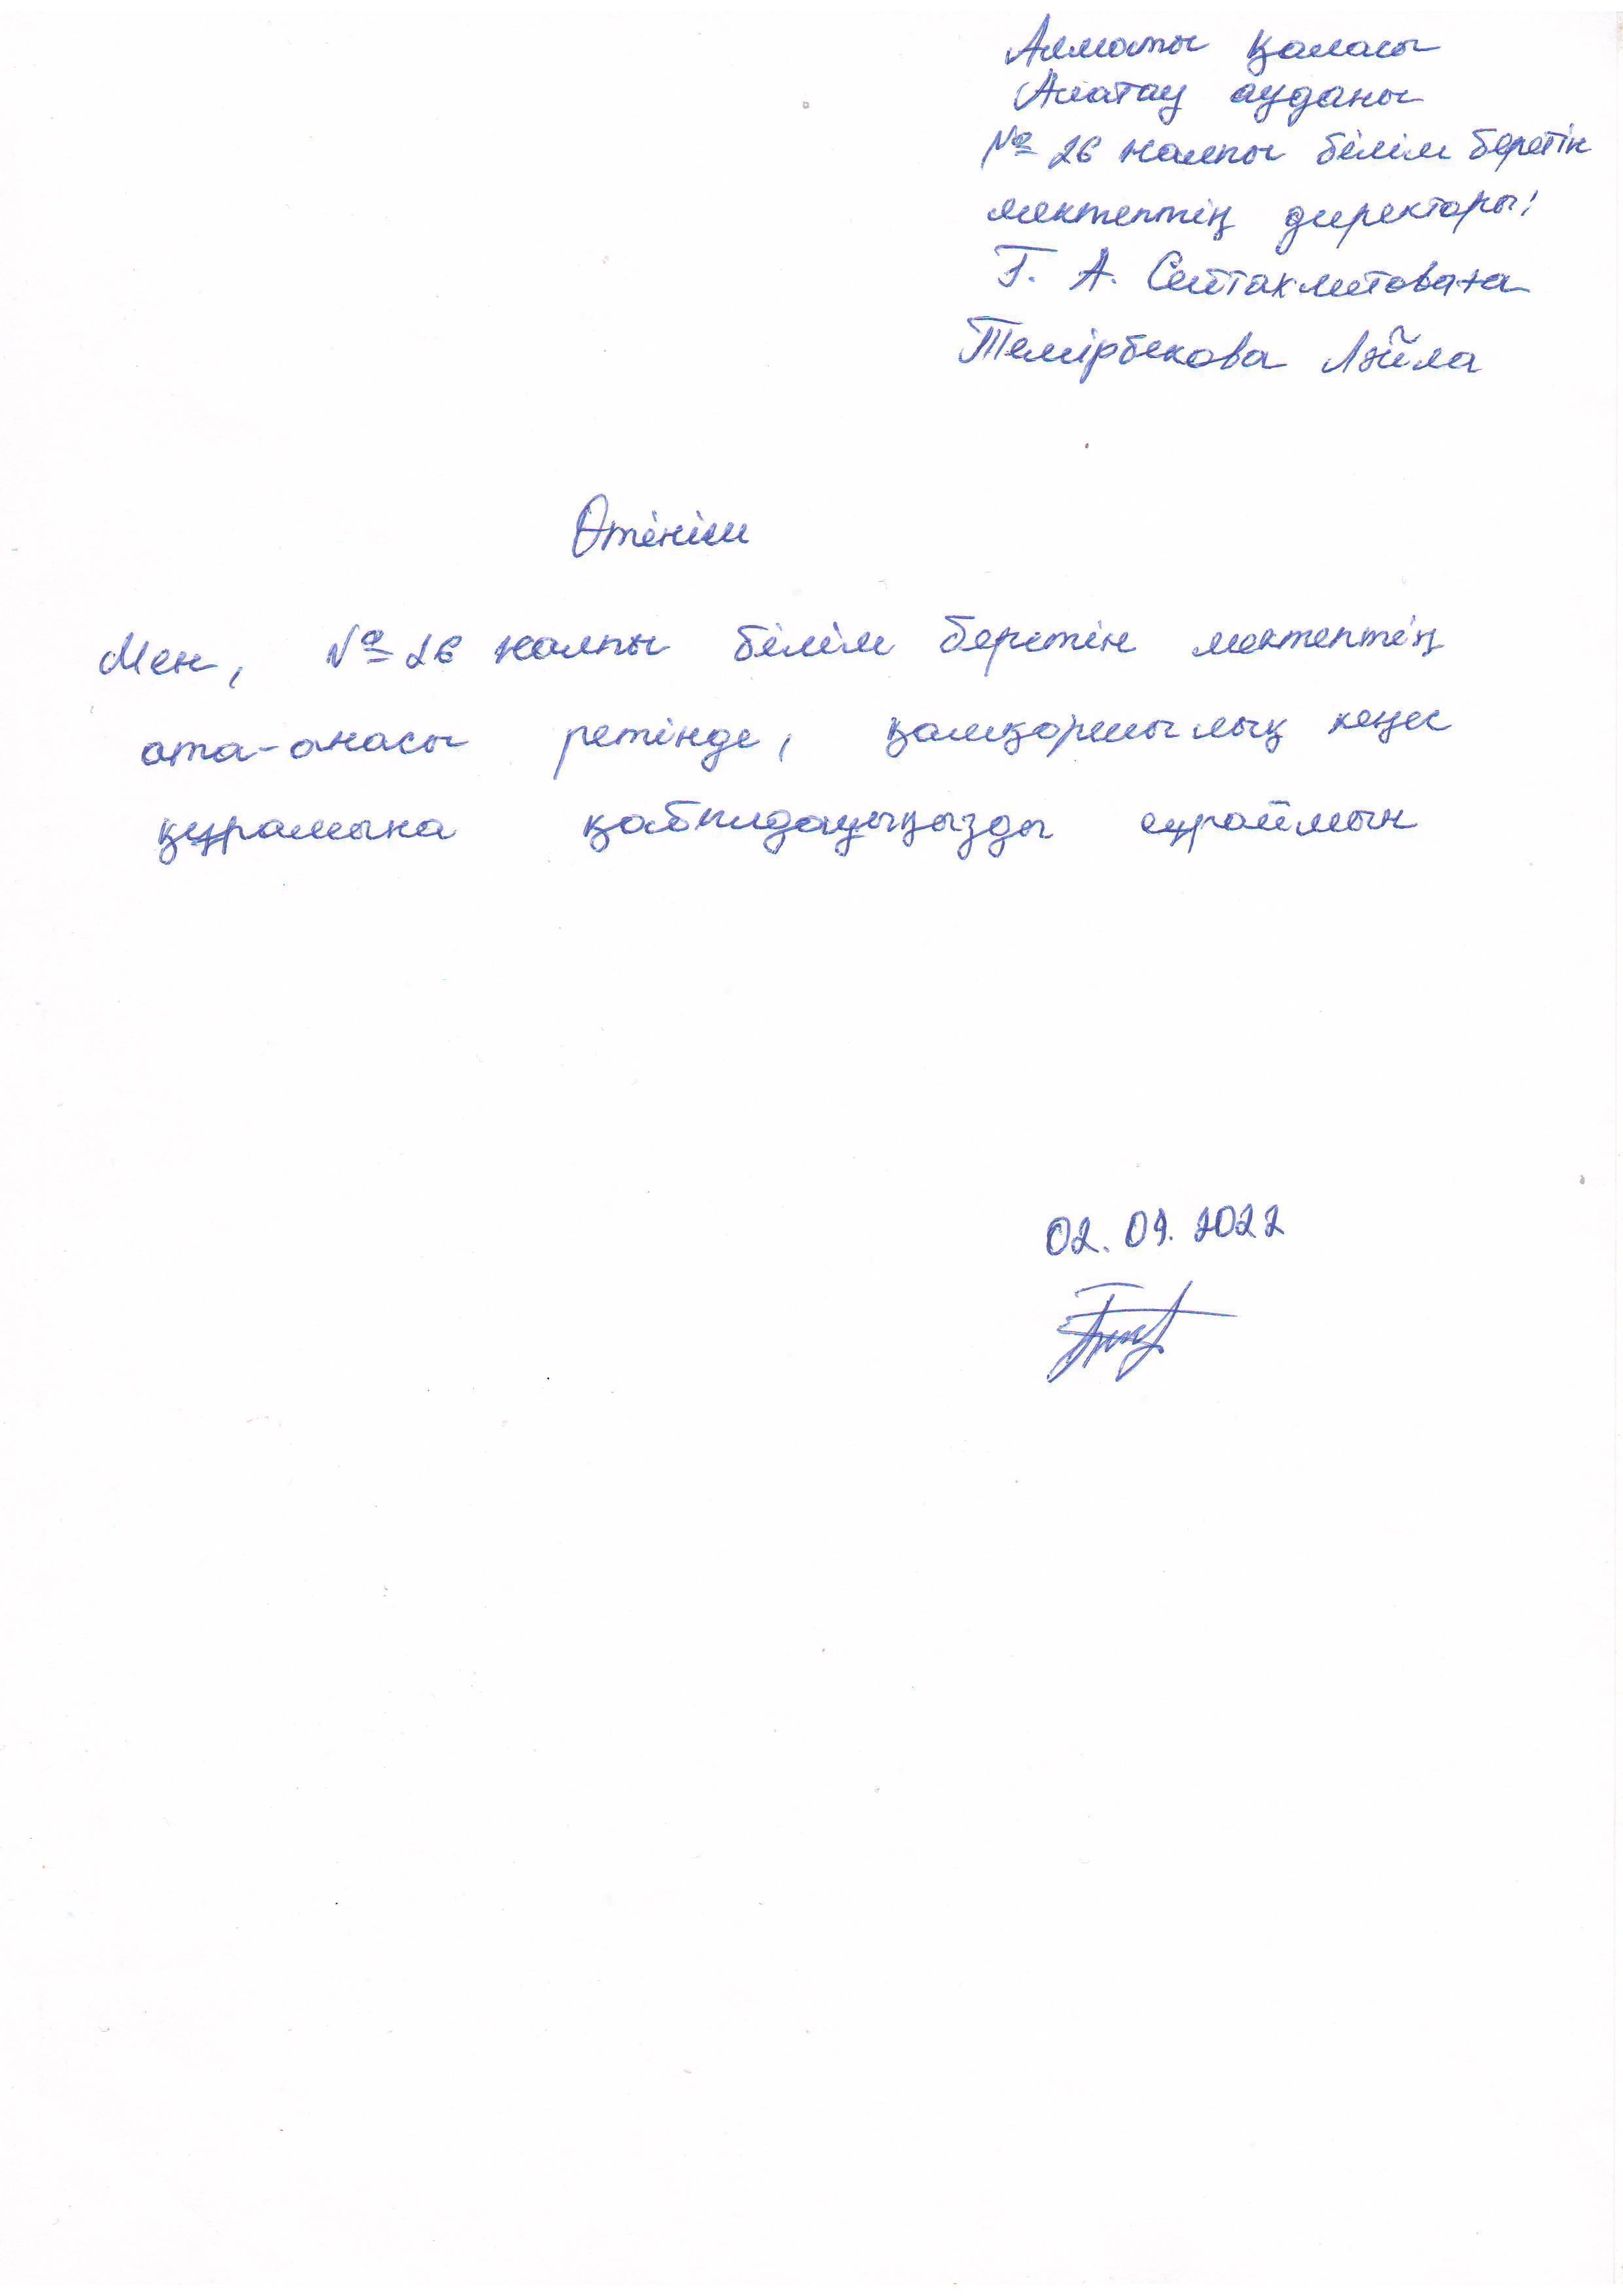 Алматы қаласы
Алатау ауданы
№ 26 жалпы білім беретін
мектептің директоры:
Г. А. Сейтахметоваға
Темірбекова Ләйла
Өтініш
Мен, № 26 жалпы білім беретін мектептің
ата-анасы ретінде, қамқоршылық кеңес
құрамына қабылдауыңызды сұраймын
02.09.2022